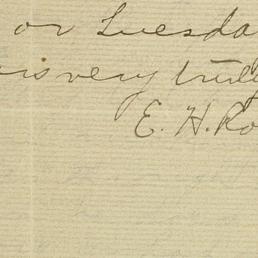 or Tuesda
is very truly
E. H. Ro